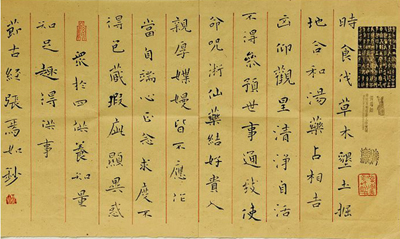 時食伐草木墾土掘
地合和湯藥占相吉
凶仰觀星清淨自活
不得參預世事通致使
命咒術仙藥結好貴人
親厚媟嫚皆不應作
當自端心正念求度不
得包藏瑕疵顯異惑
眾於四供養知量
知足趣得供事
節古經張如鈔